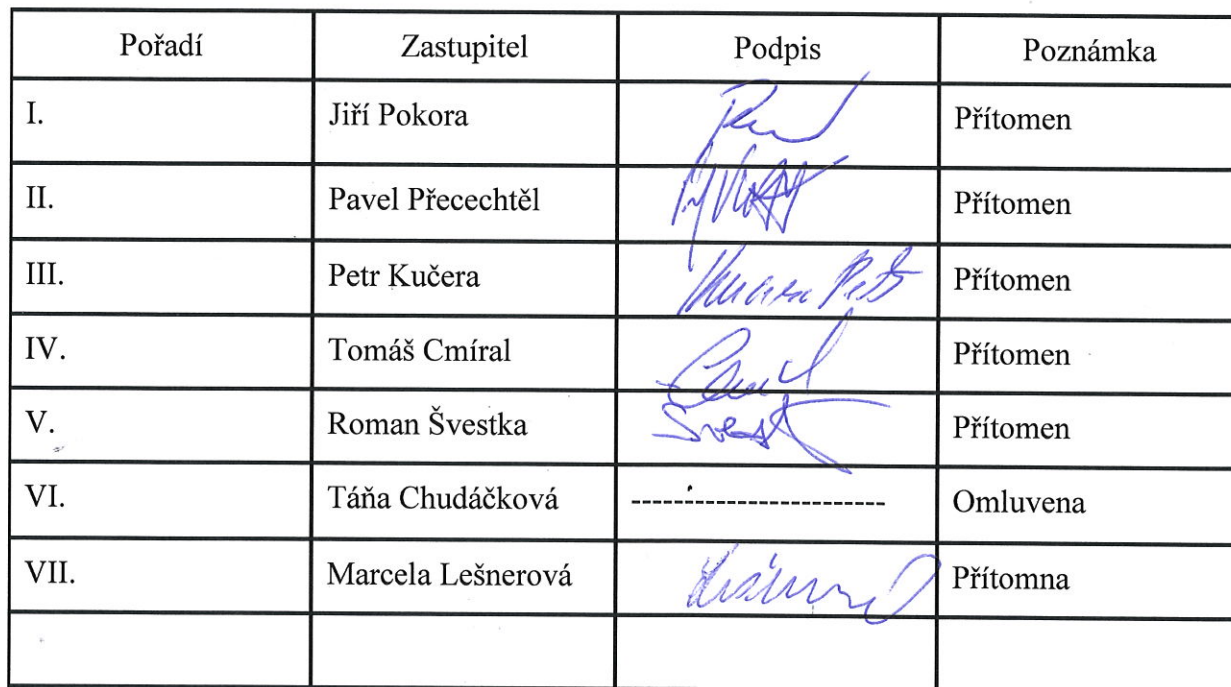 Pořadí Zastupitel Podpis Poznámka
I. Jiří Pokora Přítomen
II. Pavel Přecechtěl Přítomen
III. Petr Kučera Kučera Petr Přítomen
IV. Tomáš Cmíral Přítomen
V. Roman Švestka Švestk Přítomen
VI. Táňa Chudáčková ------------------------- Omluvena
VII. Marcela Lešnerová Přítomna